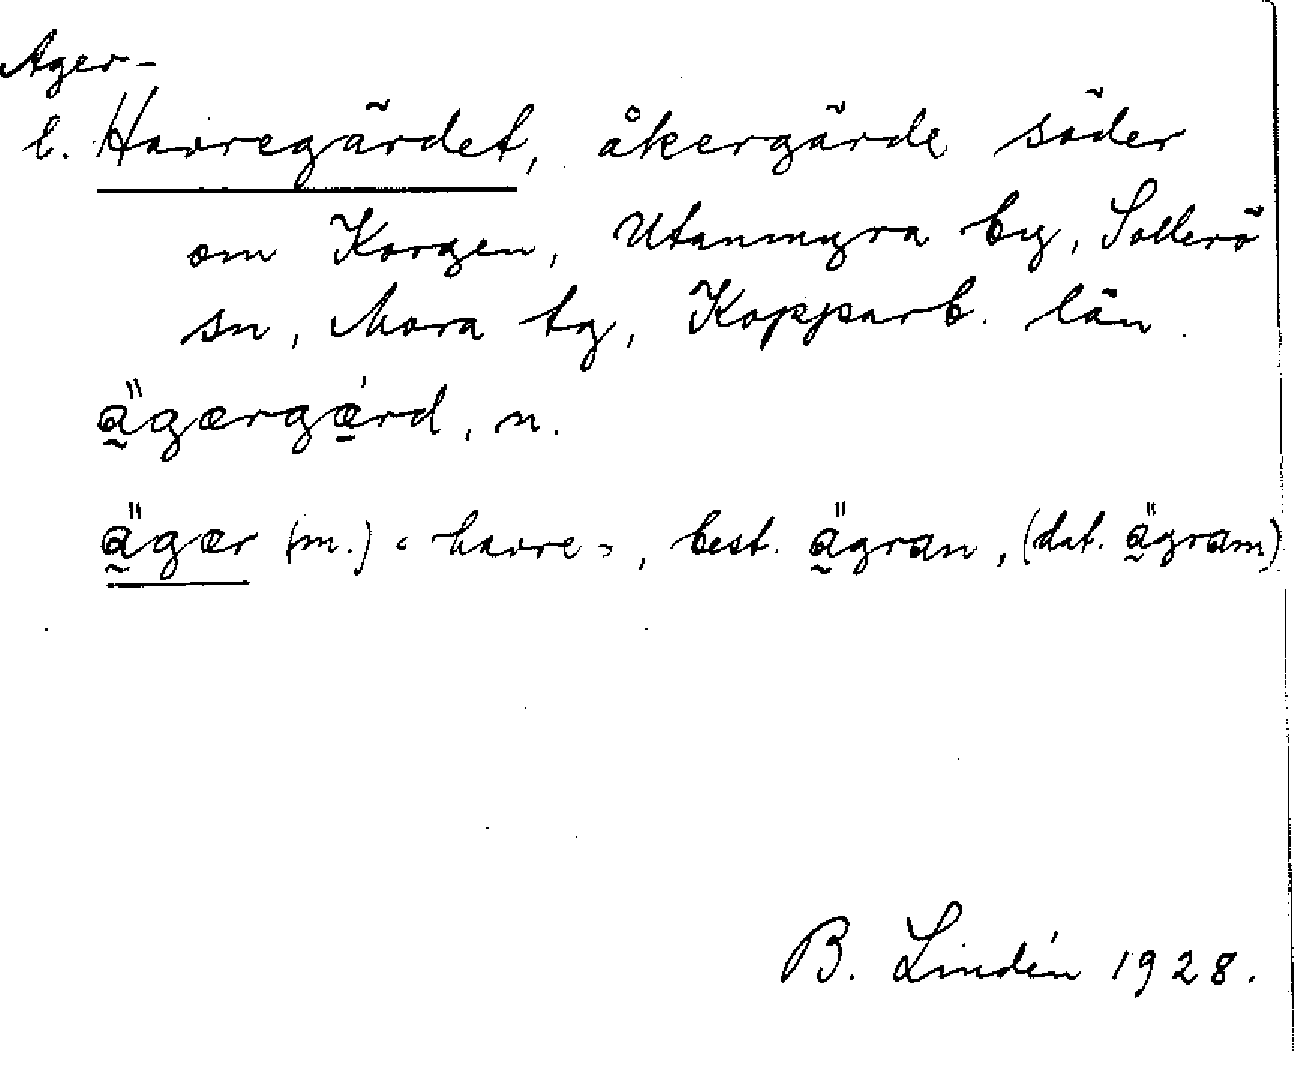 Ager-
l. Havregärdet, åkergärde söder
om Korgen, Utanmyra by, Sollerö
sn, Mora tg, Kopparb. län.
ä̰gærgǽ̠rd, n.
ä̰gær (m.) "havre", best. ä̰gran, (dat. ä̰gram)
B. Lindén 1928.